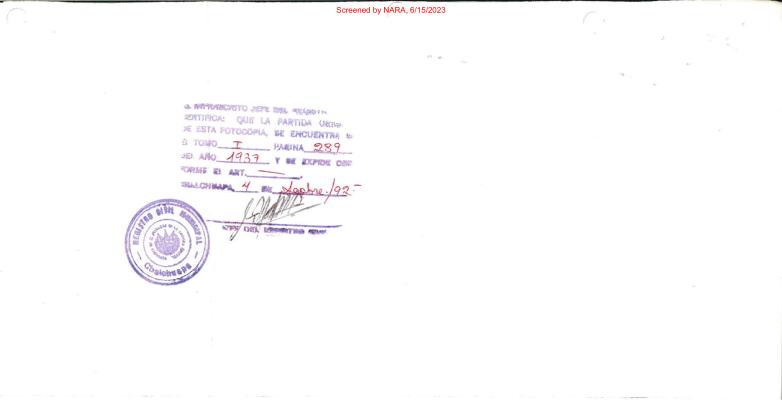 Screened by NARA, 6/15/2023
INFRASCRITO JEFE DEL
QUE LA PARTIDA
DE ESTA FOTOCOPIA, SE ENCUENTRA
TOMO I PAGINA 289
DEL AÑO 1937 Y SE EXPIDE CON
FORME EL ART.
CHALCHUAPA, 4 DE /92-
JEFE DEL REGISTRO CIVIL
REGISTRO CIVIL MUNICIPAL
Chalchuapa